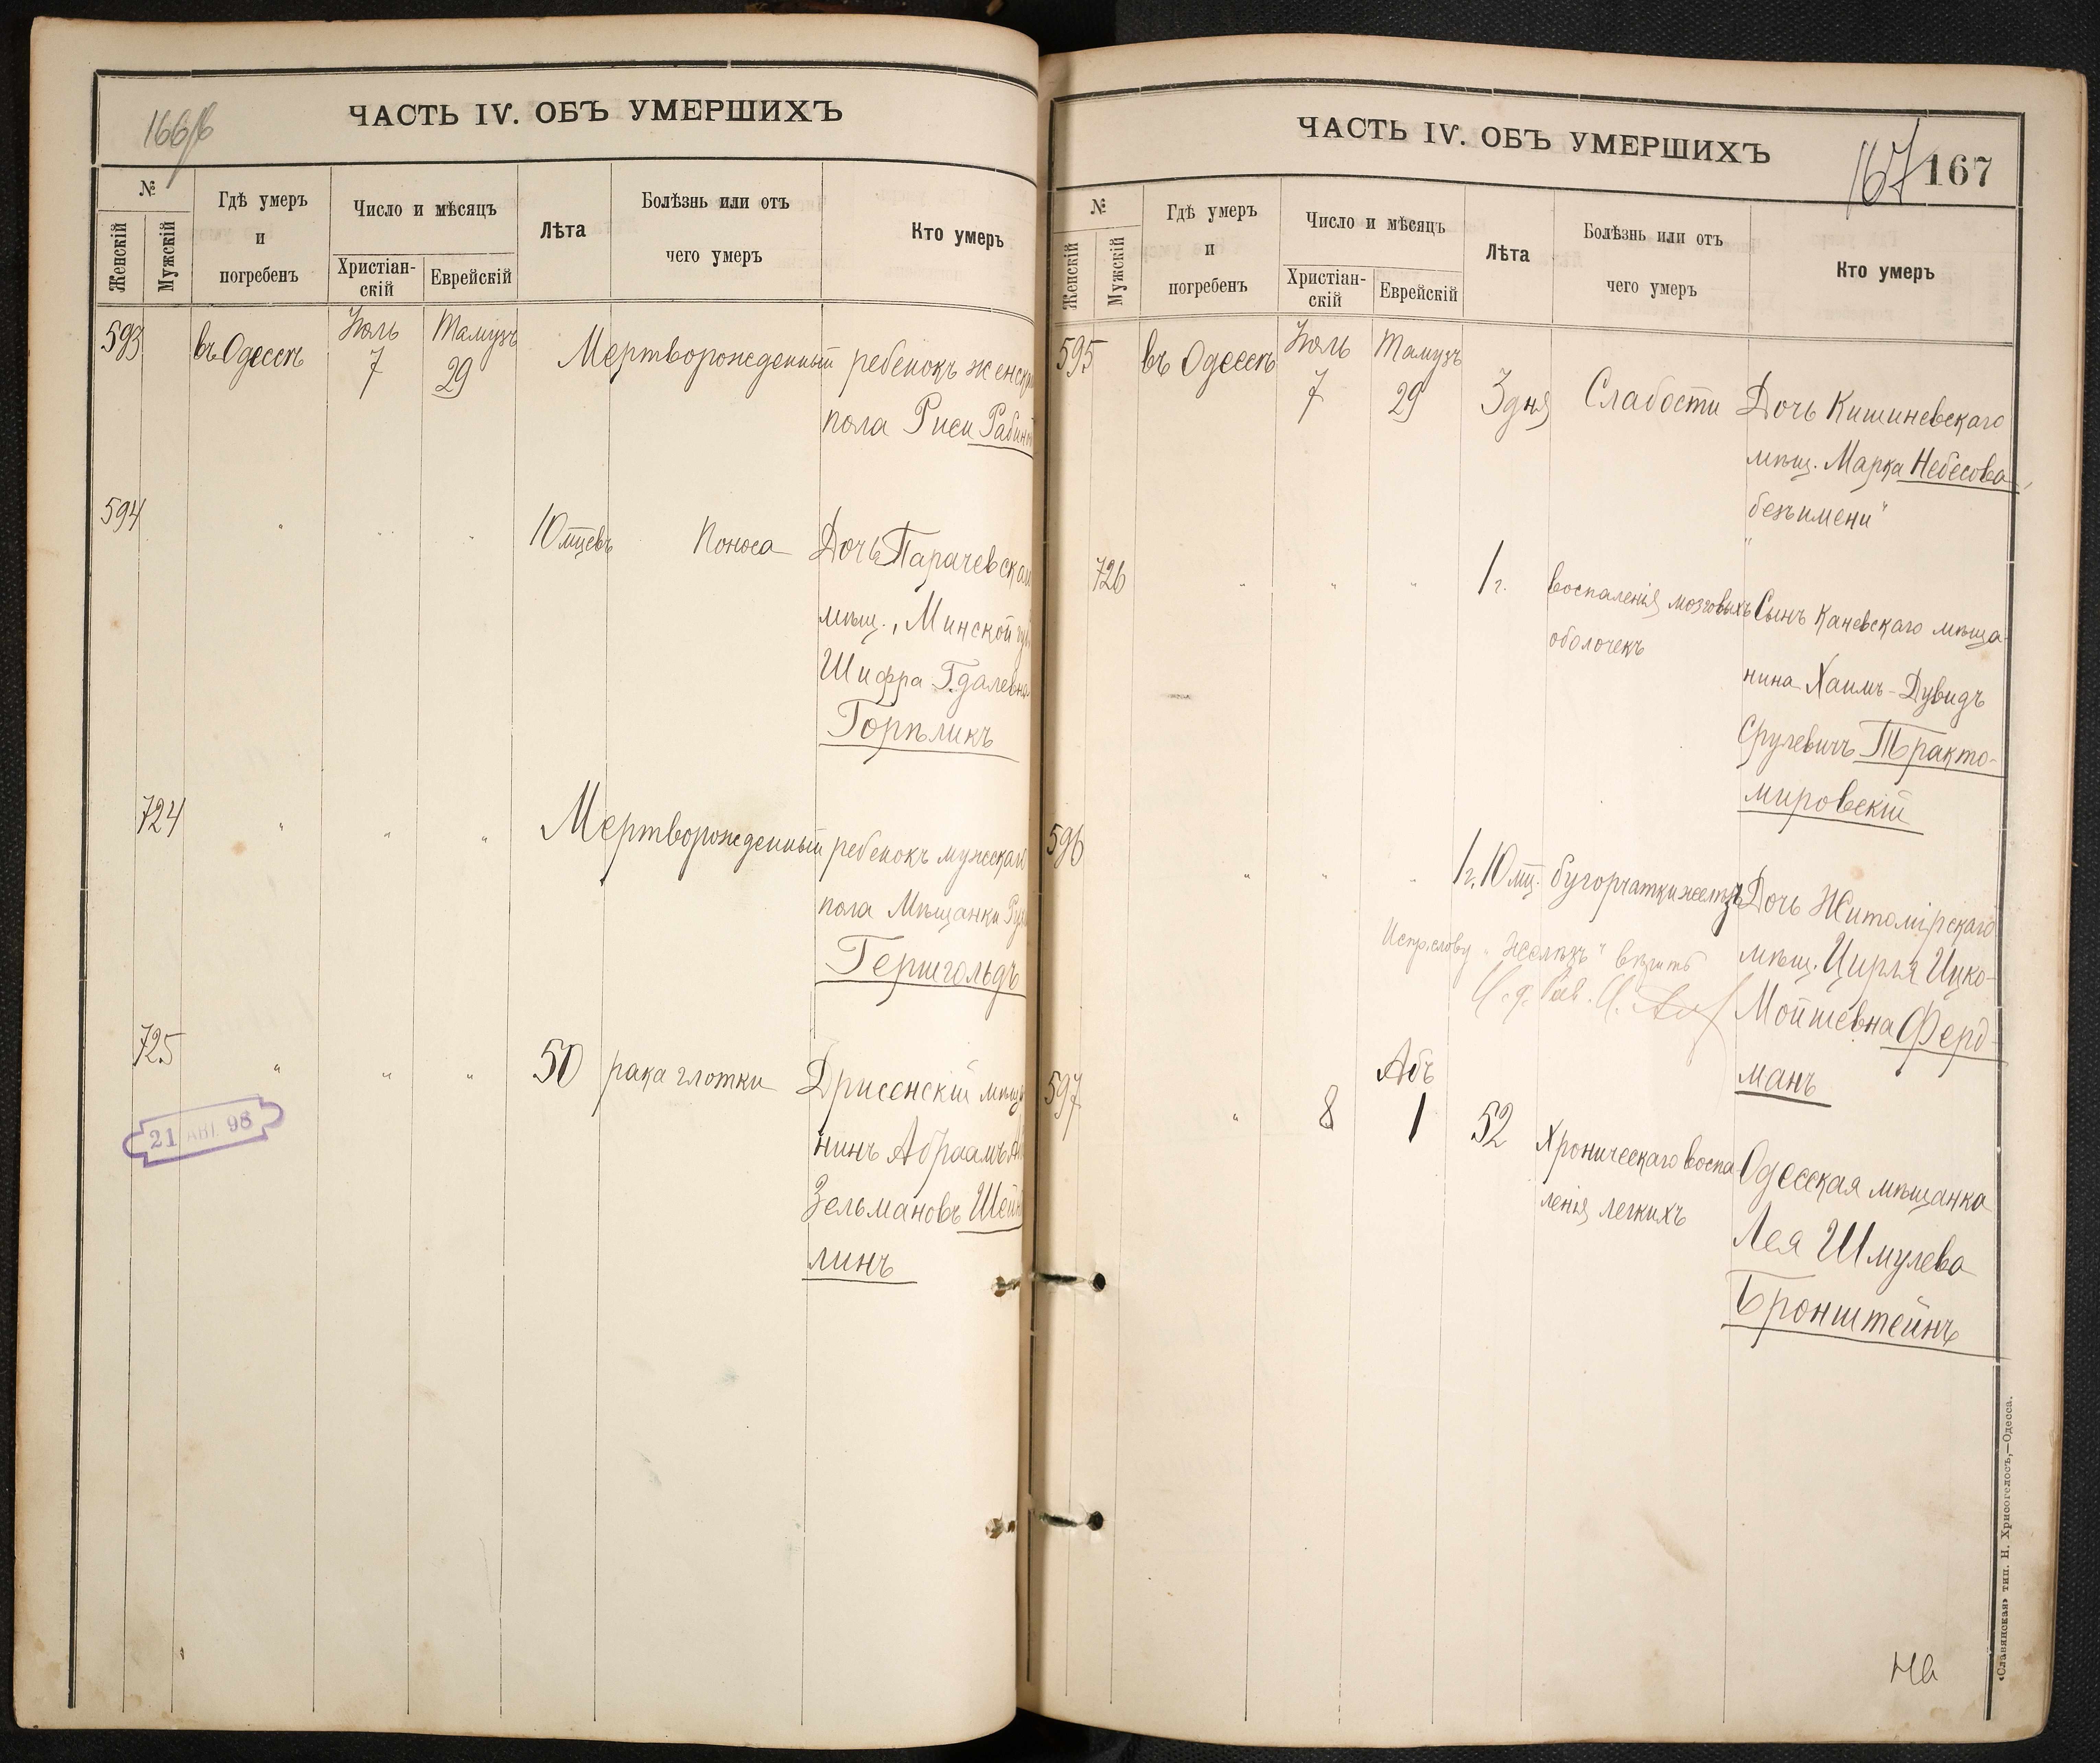 166/б
ЧАСТЬ IV. ОБЪ УМЕРШИХЪ
№
Женскій
Мужскій
Гдѣ умеръ
и
погребенъ
Число и мѣсяцъ
Христіан-
скій
Еврейскій
Лѣта
Болѣзнь или отъ
чего умеръ
Кто умеръ
593 въ Одессѣ Іюль 7 Тамузъ 29 Мертворожденный ребенокъ женск
пола Риси Рабин
594 " " " 10 мцевъ Поноса Дочь Парачевска
мѣщ., Минской гу
Шифра Гдалевна
Горѣликъ
724 " " " Мертворожденный ребенокъ мужескаго
пола Мѣщанки
Гершгольдъ
725 " " " 50 рака глотки Дрисенскій мѣщ
нинъ Абраамъ
Зельмановъ Шей
линъ
21 АВГ. 98
ЧАСТЬ IV. ОБЪ УМЕРШИХЪ
167 167
№
Женскій
Мужскій
Гдѣ умеръ
и
погребенъ
Число и мѣсяцъ
Христіан-
скій
Еврейскій
Лѣта
Болѣзнь или отъ
чего умеръ
Кто умеръ
595 въ Одессѣ Іюль 7 Тамузъ 29 3 дня Слабости Дочь Кишиневскаго
мѣщ. Марка Небесова
"безъимени"
726 " " " 1 г. воспаленія мозговыхъ Сынъ Каневскаго мѣща-
оболочекъ
нина Хаимъ-Дувидъ
Срулевичъ Тракто-
мировскій
596 " " " 1 г. 10 мц. бугорчатки желѣзъ Дочь Житомірскаго
мѣщ. Цирля Ицко-
Мойшевна Ферд-
манъ
Испр. слову "желѣзъ" вѣрить
И. д. Рав.
597 " 8 Абъ 1 52 Хроническаго воспа- Одесская мѣщанка
ленія легкихъ
Лея Шмулева
Бронштейнъ
На
«Славянская» тип. Н. Хрисогелосъ,—Одесса.